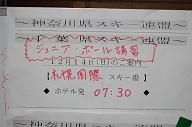 ～神奈川県スキー連盟～
～千葉県スキー連盟～
ジュニア・ポール講習
12月14日(日)のご案内
【札幌国際 スキー場】
◆ ホテル発 07:30 ◆